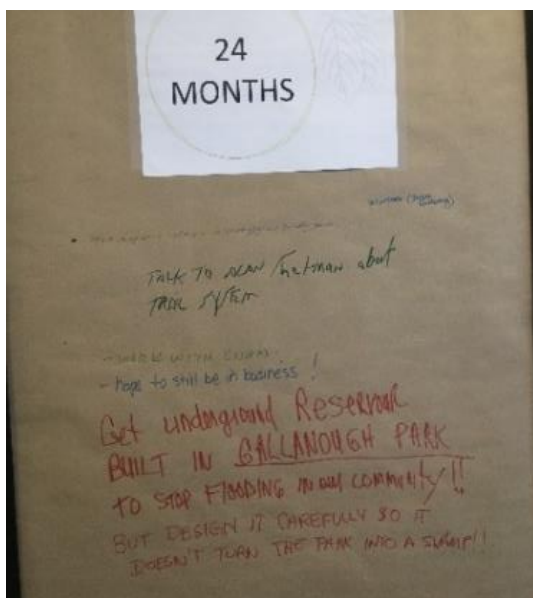 24
MONTHS
TALK TO ALAN Shefman about
TRAIL SYSTEM
- WORK WITH
- hope to still be in business !
Get underground Reservoir
BUILT IN GALLANOUGH PARK
TO STOP FLOODING in our community !!
BUT DESIGN IT CAREFULLY SO IT
DOESN'T TURN THE PARK INTO A SWAMP!!